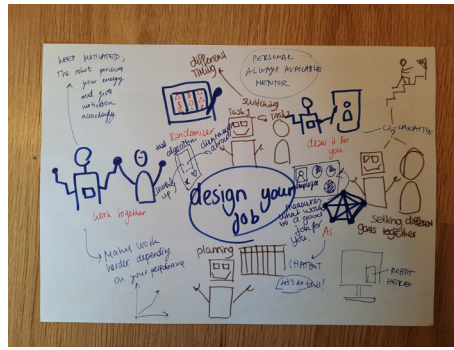 KEEP MOTIVATED:
The robot perceives
your energy
and give
motivation
accordingly
different
TIMING
PERSONAL
ALWAYS AVAILABLE
MENTOR
switching
Task 1
Task 2
Randomizer
algorithm
draw it for
you
work together
leveling up
design your
job
Employee
measures
what would
be a good
job for
you.
AI
setting different
goals together
Makes work
harder depending
on your performance
planning
CHATBOT
Let's do this!
ROBOT
HERE